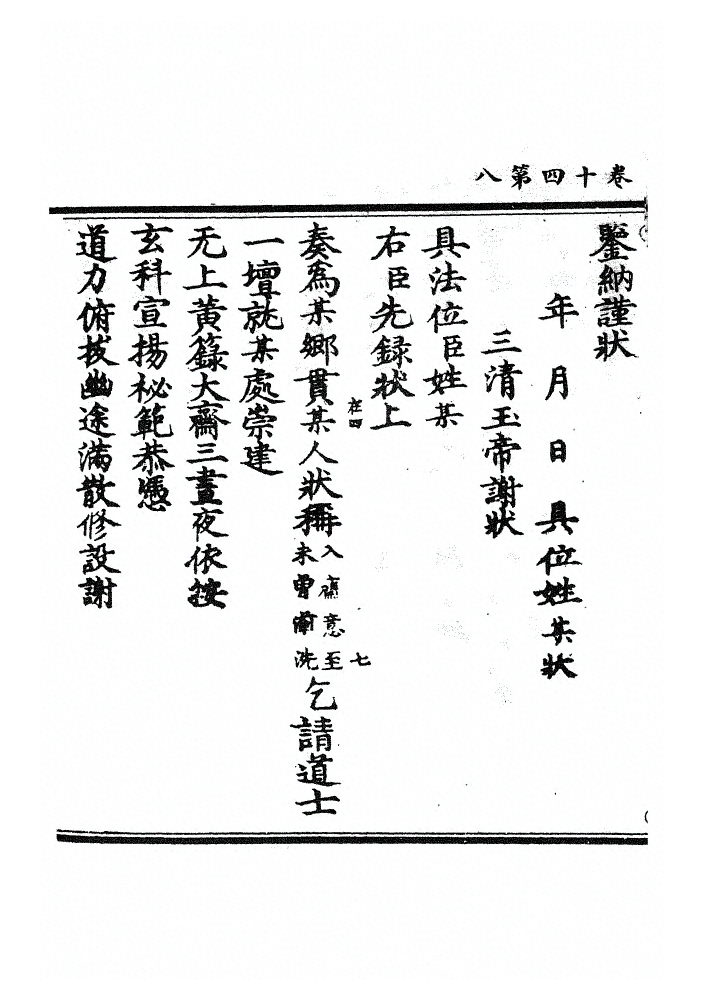 卷十四第八
鑒納謹狀
年月日具位姓某狀
三清玉帝謝狀
具法位臣姓某
右臣先錄狀上
在四
奏爲某鄉貫某人狀稱入齋意至七未曾蕑洗乞請道士
一壇就某處崇建
无上黃籙大齋三晝夜依按
玄科宣揚祕範恭憑
道力俯拔幽途滿散修設謝